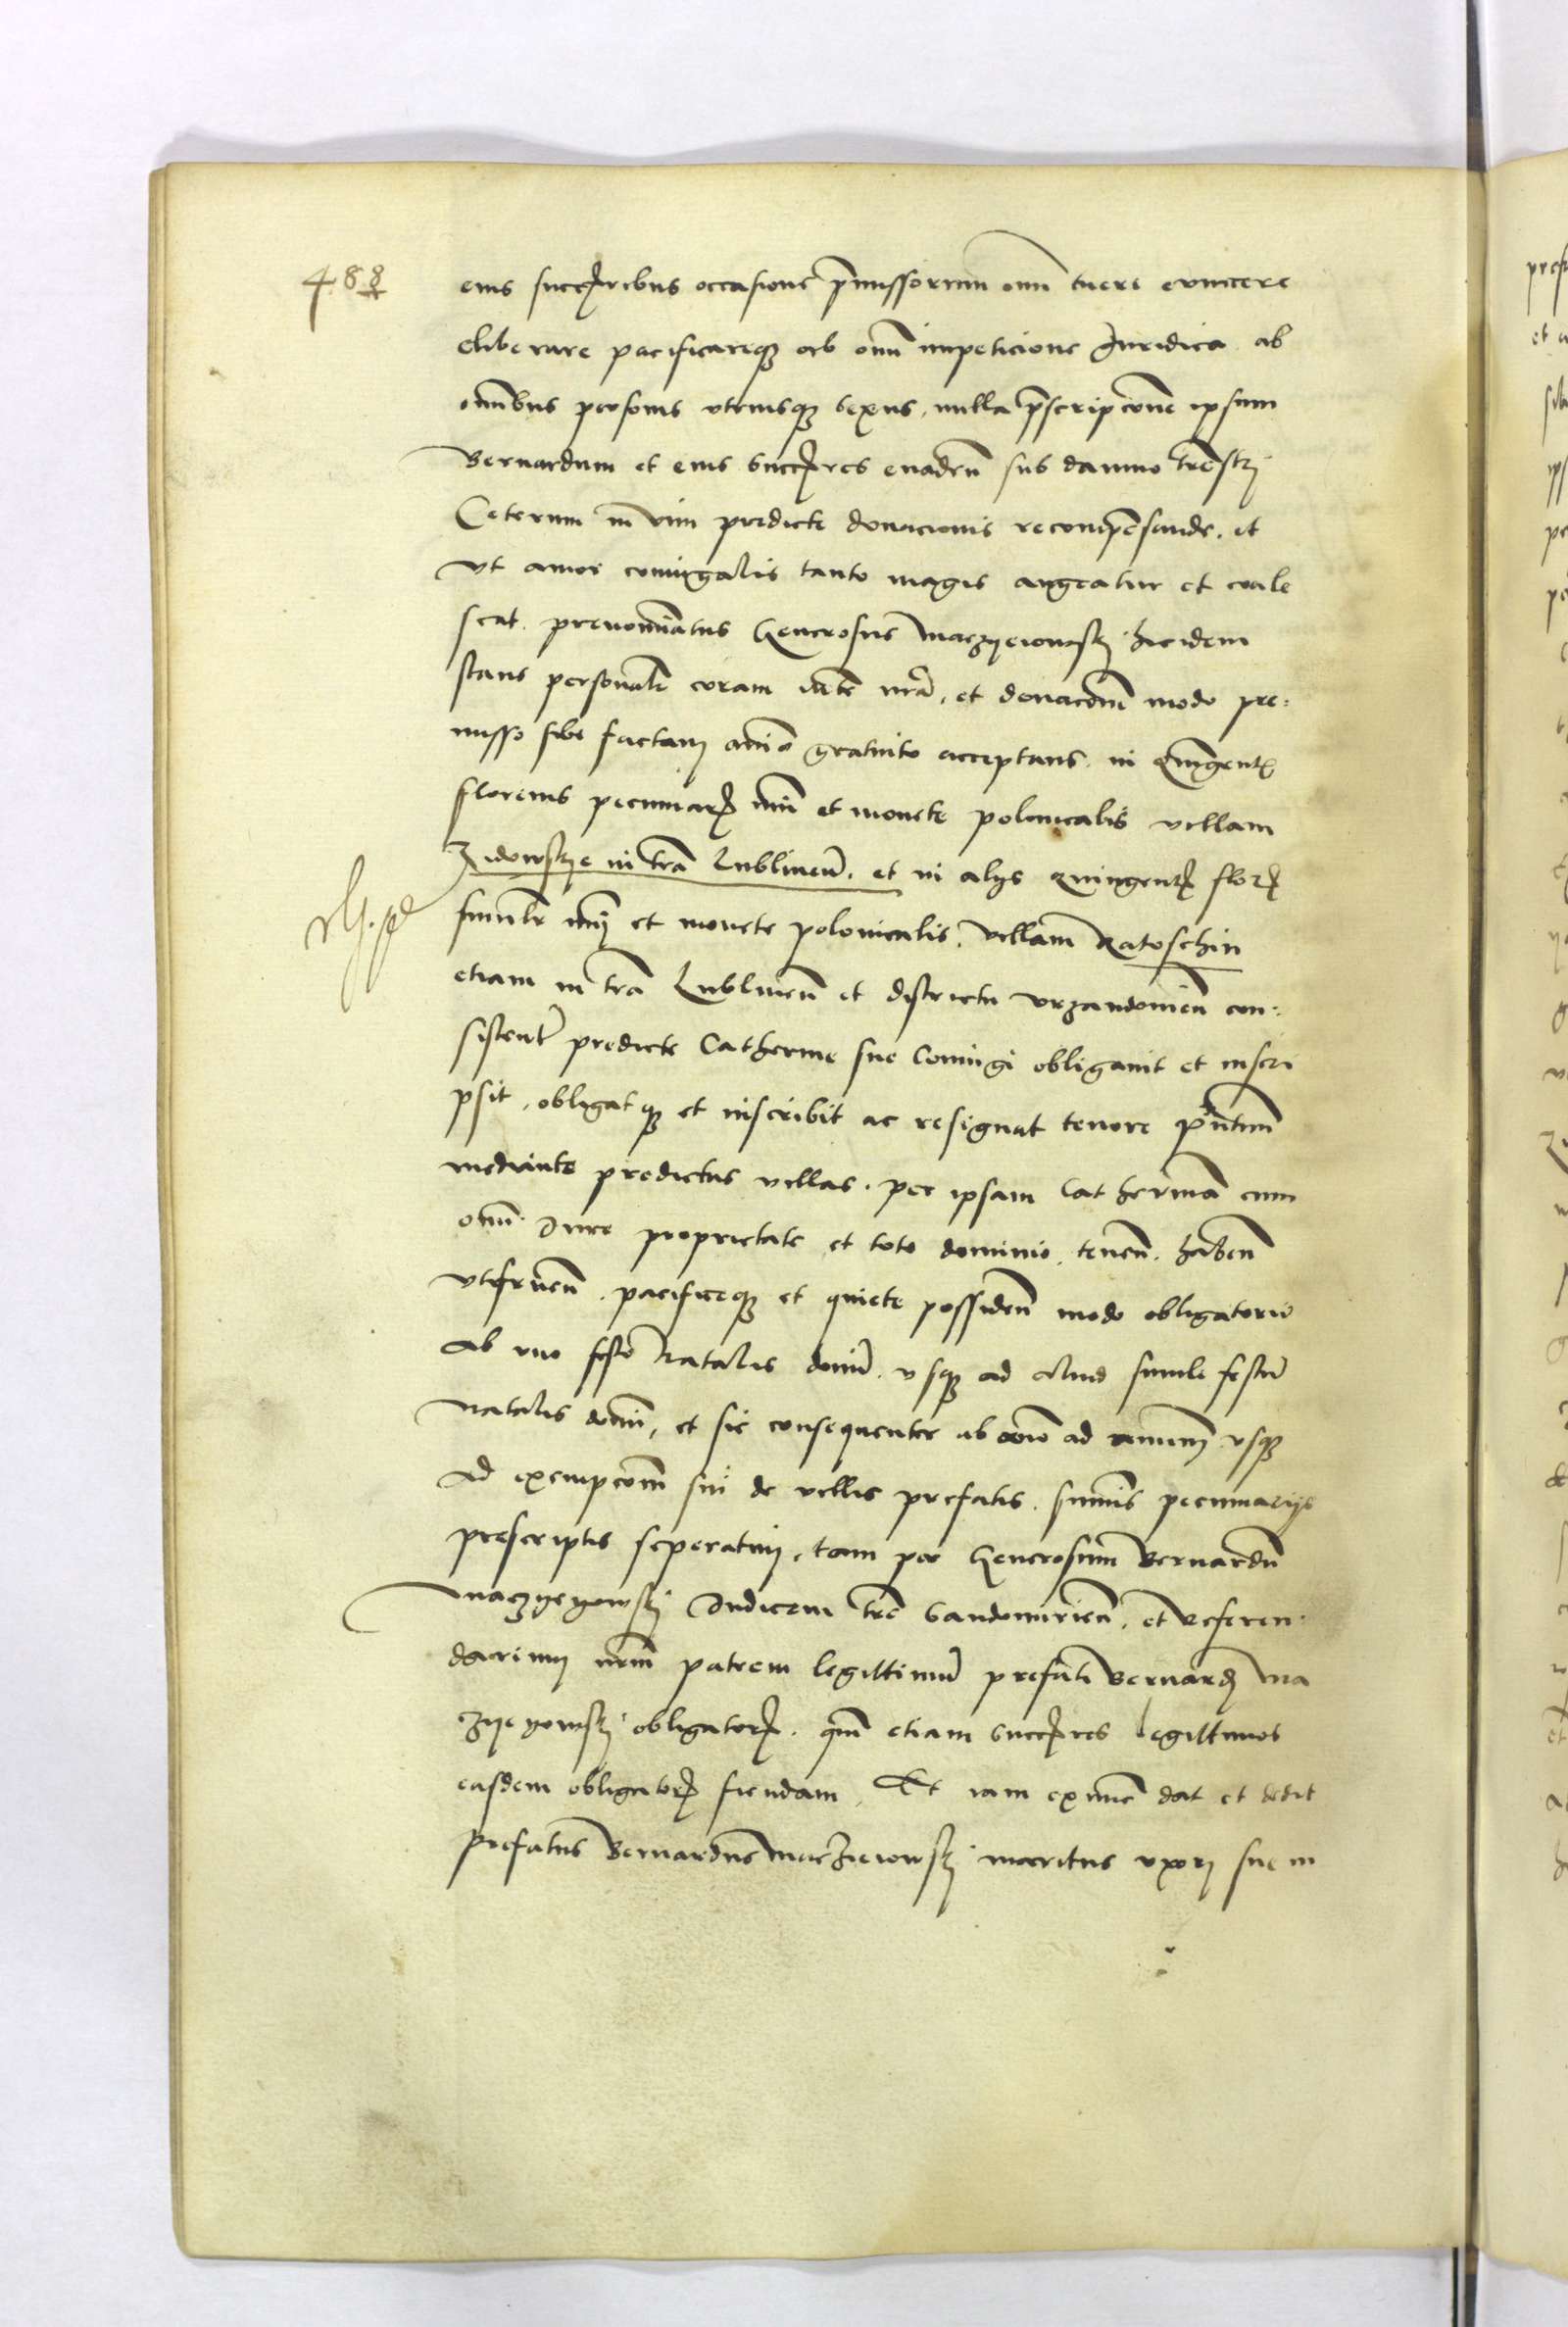 488
eius succ̃ribus occasione p̃missorum om̃i tueri evincere
eliberare pacificareq3 ab om̃i impeticione Juridica ab
om̃ibus personis vtriusq3 sexus, nulla p̃scripcione ipsum
Bernardum et eius succ̃res evadeñ sub damno tr̃estri
Ceterum in vim predicte donacionis recompẽsande. et
vt amor coniugalis tanto magis augeatur et coale
scat. prenomĩatus Generosus Maczyeiowskj hicidem
stans personaliter coram iudicio nr̃o, et donacõem modo pre:
misso sibi factam aĩo gratuito acceptans. in Quingent̃
florenis pecuniar̃ nũi et monete polonicalis villam
Zidowskye in tr̃a Lublineñ. et in alijs Quingent̃ flor̃
simil̃r nũj et monete polonicalis, villam Ratoschin
etiam in tr̃a Lublineñ et districtu vrzandowieñ con:
sisteñt predicte Catherine sue Coniugi obligauit et inscri
psit, obligatq3 et inscribit ac resignat tenore p̃ntium
mediante predictas villas. per ipsam Catherinã cum
om̃i Jure proprietate et toto dominio, teneñ. habeñ
vtifrueñ. pacificeq3 et quiete possideñ modo obligatorio
Ab vno festo Natalis domĩ. vsq3 ad aliud simile festũ
Natalis domĩ, et sic consequenter ab ãno ad annum vsq3
ad exempcõem sui de villis prefatis. summis pecuniarijs
prescriptis seperatim, tam per Generosum Bernardũ
Maczyeyowskj Judicem tr̃e Sandomirieñ, et Referen:
darium nr̃m patrem legittimũ prefati Bernardj Ma
czyeyowskj obligator̃. quã etiam succ̃res legittimos
eiusdem obligator̃ fiendam. Et iam exnunc dat et dedit
prefatus Bernardus Maczieiowskj maritus vxorj sue in